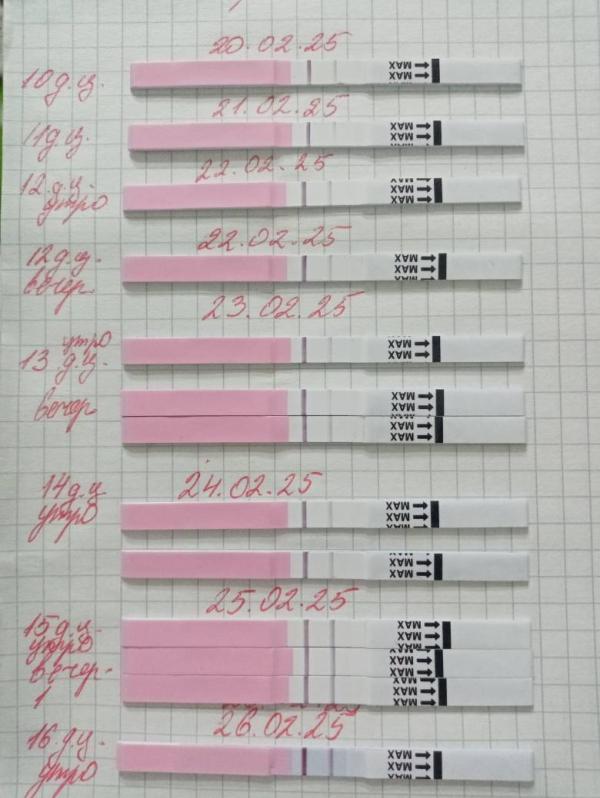 20.02.25
10 д.ц.
MAX
MAX
21.02.25
11 д.ц.
MAX
MAX
22.02.25
12 д.ц.
утро
MAX
MAX
22.02.25
12 д.ц.
вечер
MAX
MAX
23.02.25
утро
13 д.ц.
MAX
MAX
вечер
MAX
MAX
MAX
MAX
24.02.25
14 д.ц.
утро
MAX
MAX
MAX
MAX
25.02.25
15 д.ц.
утро
MAX
MAX
вечер
MAX
MAX
1
MAX
MAX
26.02.25
16 д.ц.
утро
MAX
MAX